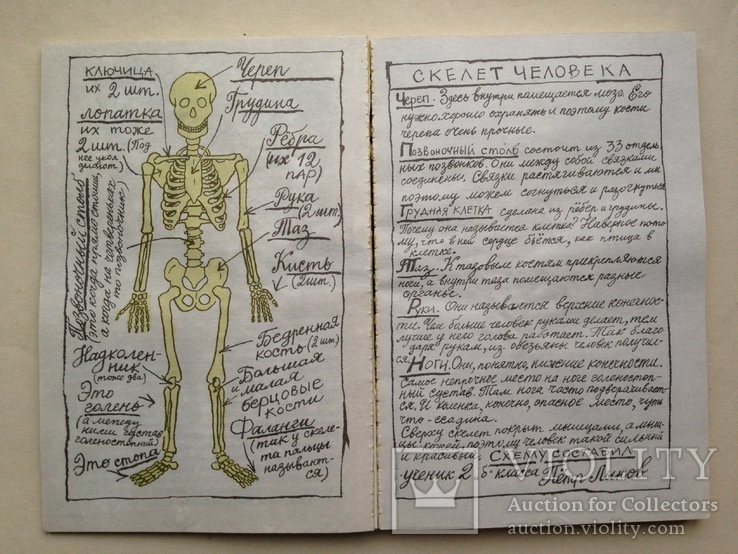 КЛЮЧИЦА
их 2 шт.
лопатка
их тоже
2 шт. (Под
нее укол
делают)
Позвоночный столб
(это когда прямо стоишь,
а когда на четвереньках
то позвоночник)
Надколен-
ник
(тоже два)
Это
голень
(а между
ними сустав
голеностопный)
Это стопа
Череп
Грудина
Рёбра
(их 12
пар)
Рука
(2 шт.)
Таз
Кисть
(2 шт.)
Бедренная
кость (2 шт)
Большая
и малая
берцовые
кости
Фаланги
(так у скеле-
та пальцы
называют-
ся)
СКЕЛЕТ ЧЕЛОВЕКА
Череп. Здесь внутри помещается мозг. Его
нужно хорошо охранять и поэтому кости
черепа очень прочные.
Позвоночный столб состоит из 33 отдель-
ных позвонков. Они между собой связками
соединены. Связки растягиваются и мы
поэтому можем согнуться и разогнуться.
Грудная клетка сделана из рёбер и грудины.
Почему она называется клетка? Наверное пото-
му, что в ней сердце бьётся, как птица в
клетке.
Таз. К тазовым костям прикрепляются
ноги, а внутри таза помещаются разные
органы.
Руки. Они называются верхние конечнос-
ти. Чем больше человек руками делает, тем
лучше у него голова работает. Так благо-
даря рукам, из обезьяны человек получил-
ся.
Ноги. Они, понятно, нижние конечности.
Самое непрочное место на ноге голеностоп-
ный сустав. Там нога часто подворачивает-
ся. И коленка, конечно, опасное место, чуть
что - ссадина.
Сверху скелет покрыт мышцами, а мыш-
цы кожей, поэтому человек такой сильный
и красивый.
СХЕМУ СОСТАВИЛ
ученик 2 „б" класса
Пётр
VIOLITY
Auction for Collectors
auction.violity.com